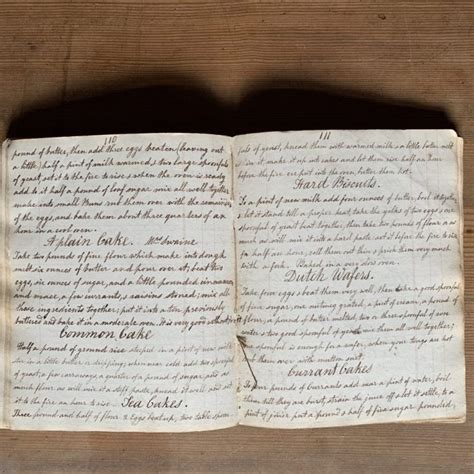 110
pound of butter, then add three eggs beaten (leaving out
a little) half a pint of milk warmed & two large spoonfuls
of yeast set it to the fire to rise & when the oven is ready
add to it half a pound of loaf sugar mix all well together
make into small Buns rub them over with the remainder
of the eggs, and bake them about three quarters of an
hour in a cool oven.
A plain Cake. Mrs Swaine
Take two pounds of fine flour which make into dough
melt six ounces of butter and pour over it, beat two
eggs, six ounces of sugar, and a little pounded cinnamon
and mace, a few currants, & raisins stoned; mix all
these ingredients together; put it into a hoop previously
buttered and bake it in a moderate oven. It is very good without
Common Cake
Half a pound of ground rice steeped in a pint of new milk
a little butter
a pound of sugar,
flour as will mix it a stiff paste, and set it
to the fire an hour to rise.
Tea Cakes.
Three pound and half of flour 2 Eggs beat up, two table spoon
111
of yeast, knead them with warmed milk & a little butter melt
in it make it up into cakes and let them rise half an hour
before the fire ere you put it into the oven, bake them hot.
Hard Biscuits.
To a pint of new milk add four ounces of butter, boil it together
let it stand till a proper heat, take the yolks of two eggs
spoonful of yeast, and put to them; then take 2 pounds of flour & as
much as will mix it into a hard paste set it before the fire to rise
for half an hour, roll them out thin & prick them very much
with a fork. Baked in a very slow oven.
Dutch Wafers.
Take four eggs beat them very well, then take a good spoonful
of fine sugar, one nutmeg grated, a pint of cream, a pound of
flour, a pound of butter melted, two or three spoonfuls of rose
water & two good spoonfuls of yeast mix them all well together;
when your tongs are hot
rub them over with mutton suet
Currant Cakes
To four pounds of currants add near a pint of water, boil
them till they are bursted, strain the juice off & let it settle, to a
pint of juice put a pound & half of fine sugar pounded,